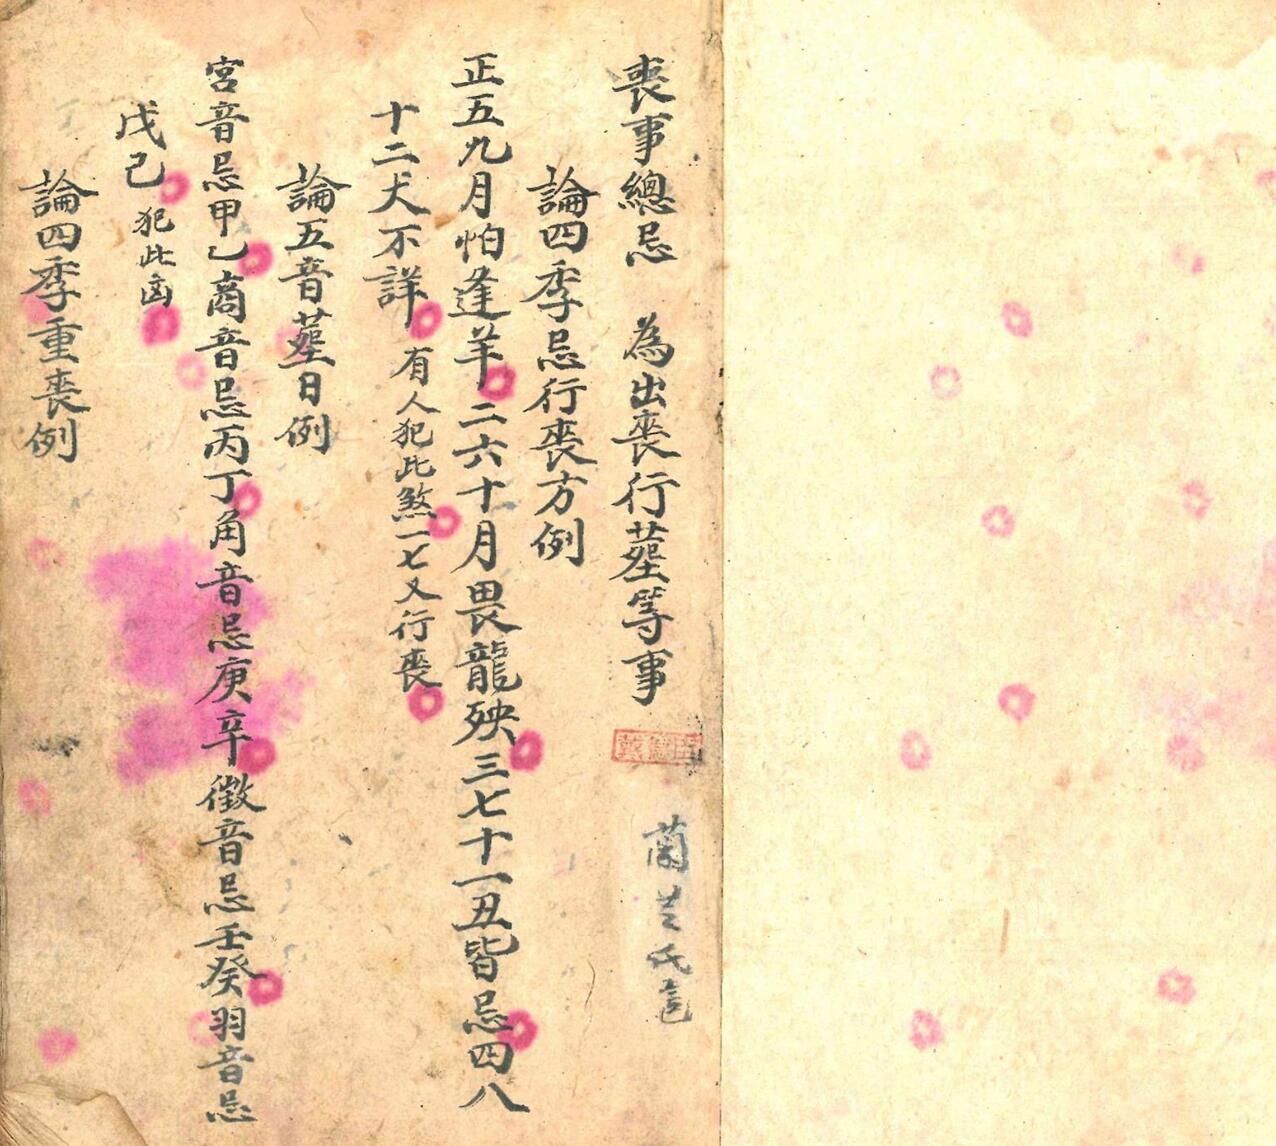 喪事總忌　為出喪行塟等事
論四季忌行喪方例
正五九月怕逢羊二六十月畏龍殃三七十一丑皆忌四八
十二犬不詳 有人犯此煞一七又行喪
論五音塟日例
宮音忌甲乙商音忌丙丁角音忌庚辛徵音忌壬癸羽音忌
戊己 犯此凶
論四季重喪例